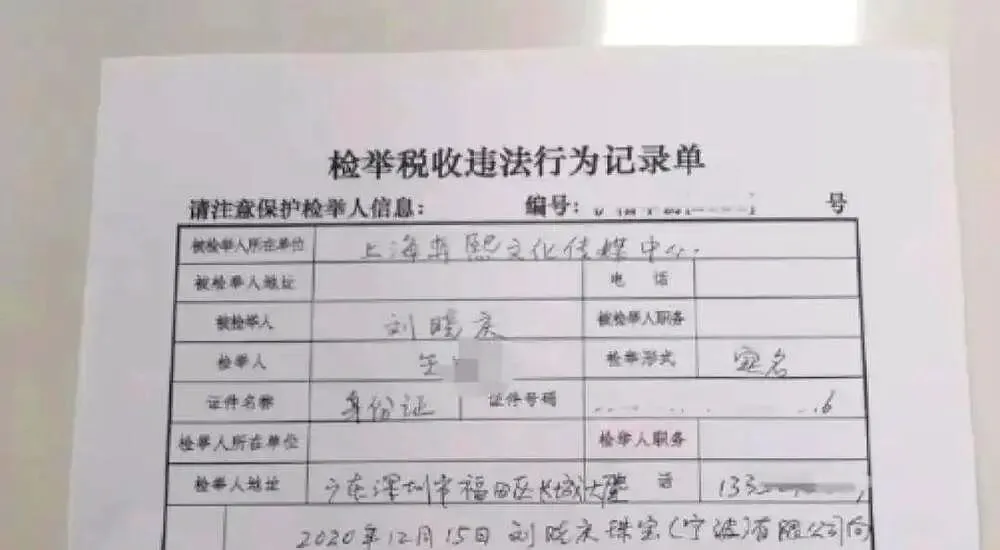 检举税收违法行为记录单
请注意保护检举人信息: 编号: 号
被检举人所在单位 上海 熙文化传媒中心
被检举人地址 电 话
被检举人 刘晓庆 被检举人职务
检举人 王 检举形式 实名
证件名称 身份证 证件号码 6
检举人所在单位 检举人职务
检举人地址 广东深圳市福田区长城大厦 话 133
2020年12月15日刘晓庆珠宝(宁波)有限公司向